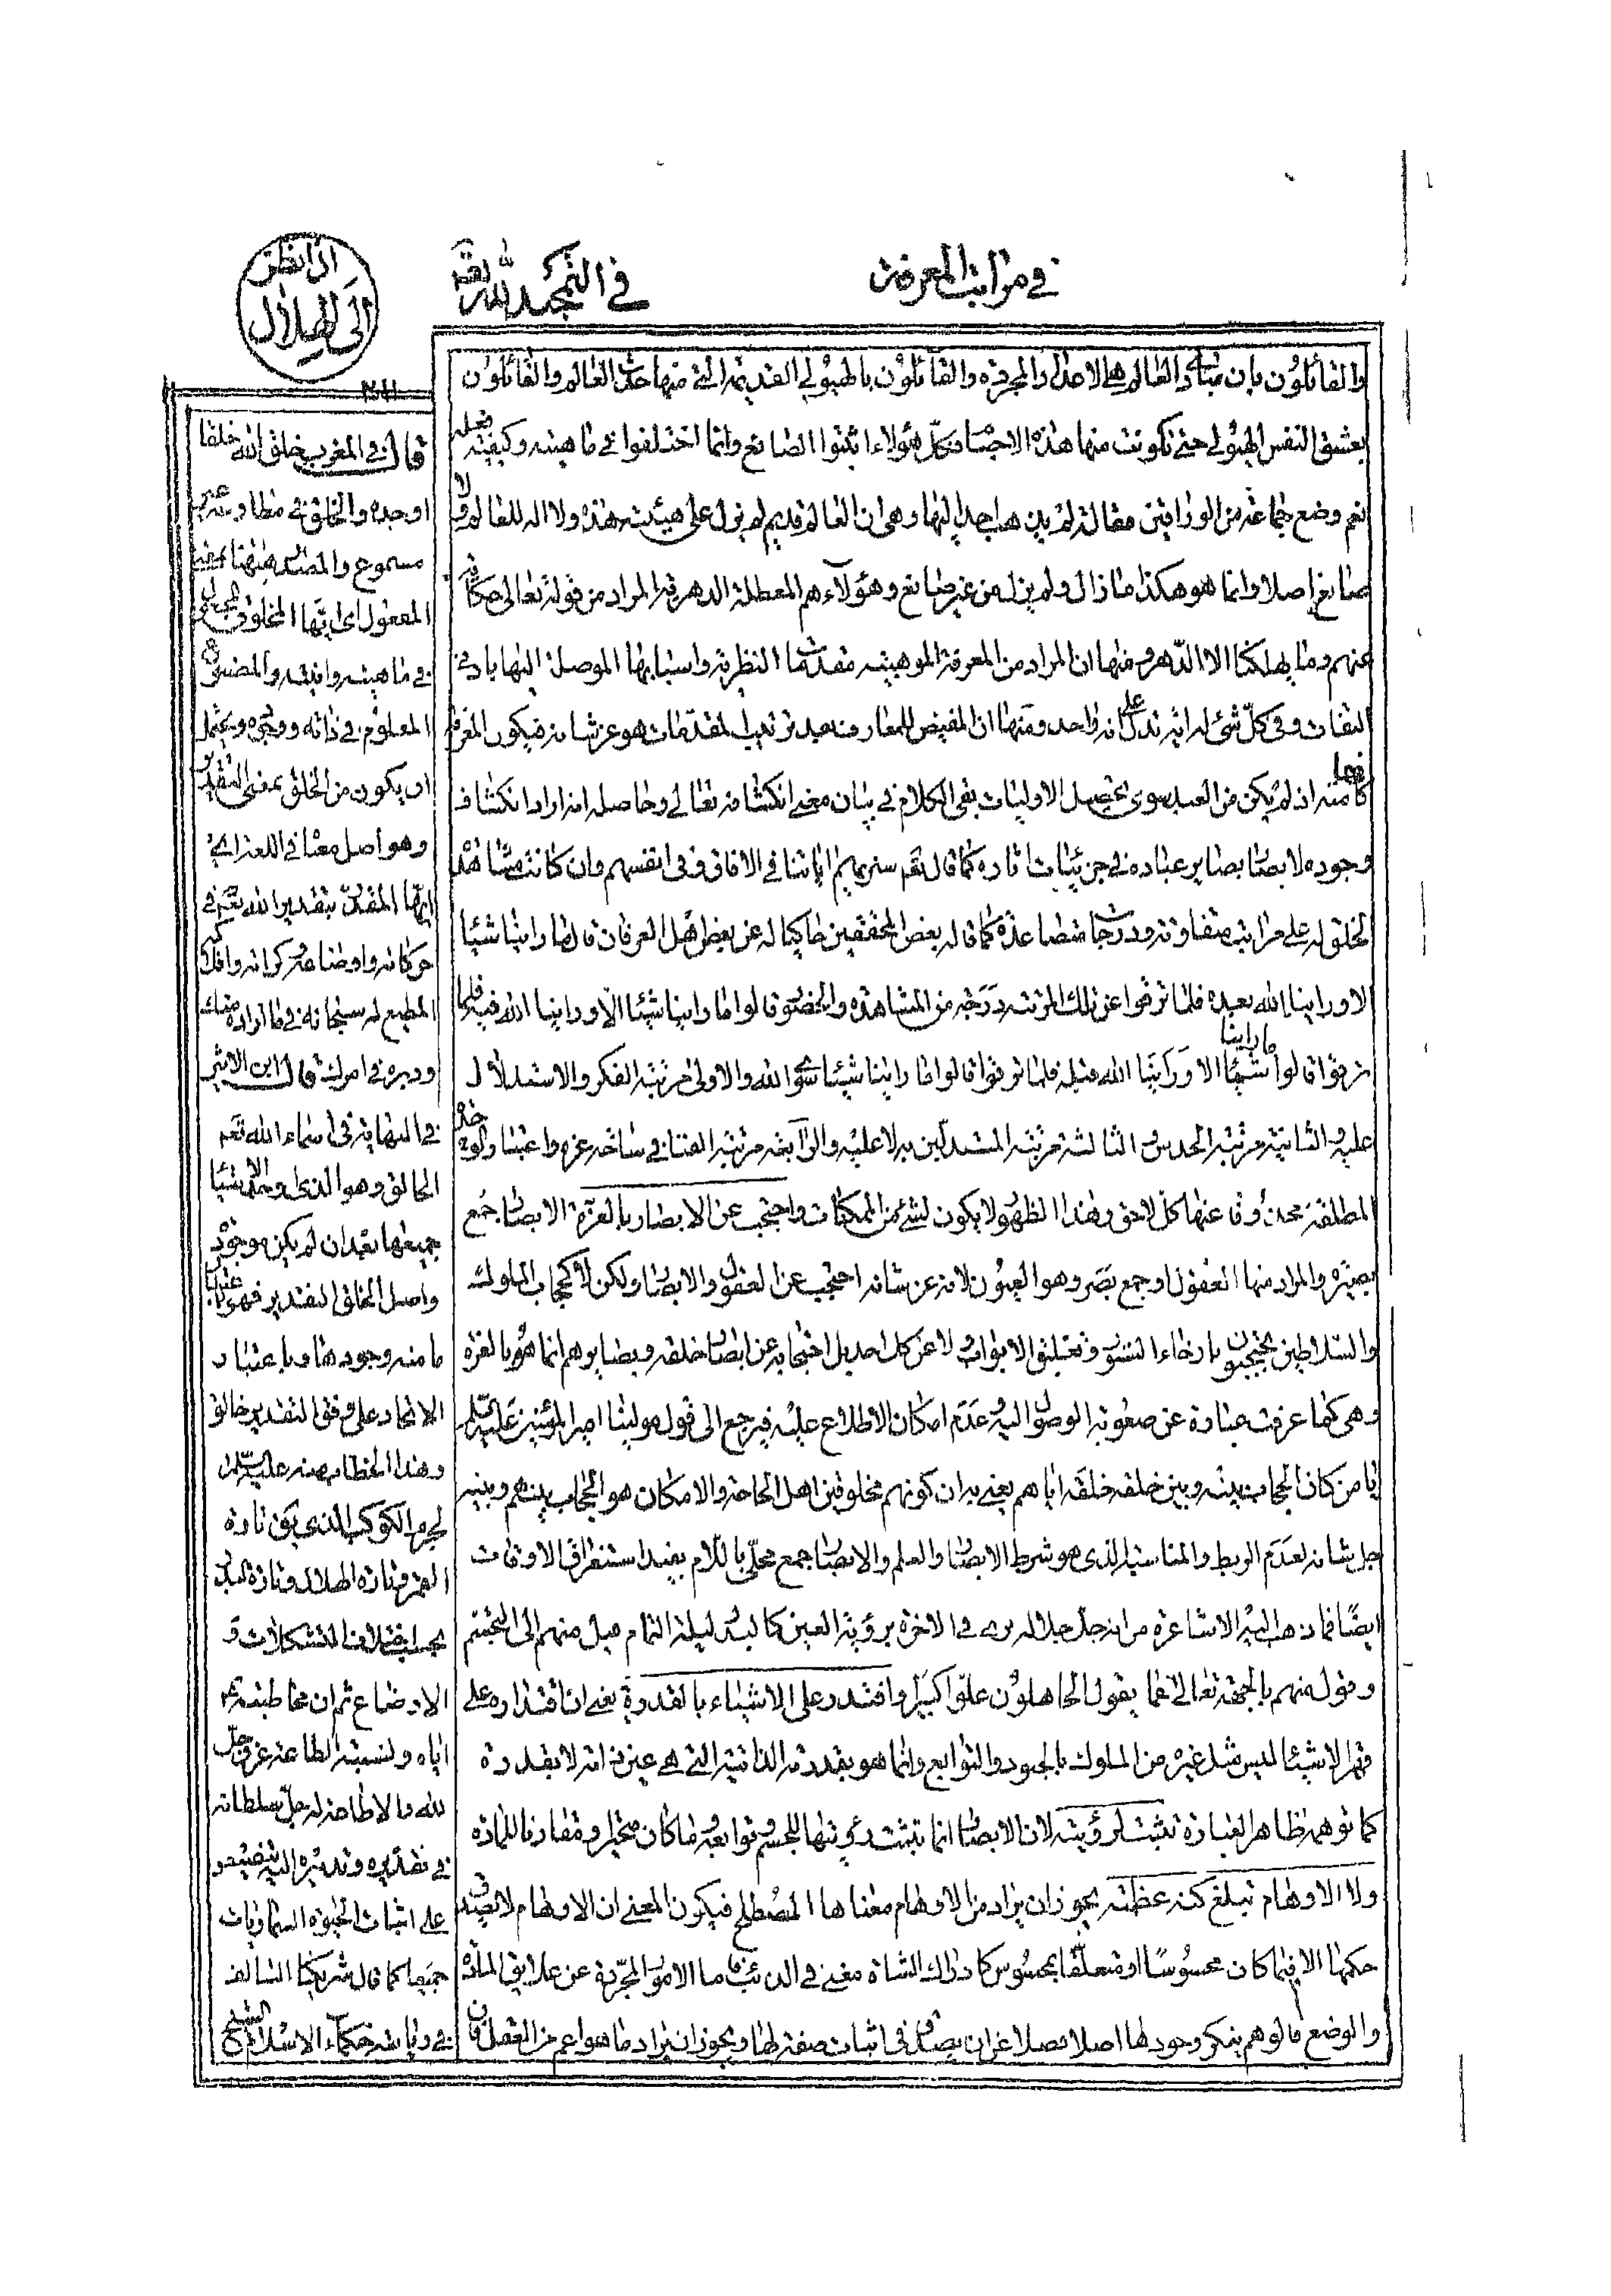 في مراتب المعرفة
في التمجيد لله تعالى
اذا نظر
الى الهلال
والقائلون بان مبادى العالم هي الاعداد المجردة والقائلون بالهيولى القديمة التي منها حدث العالم والقائلون
بعشق النفس الهيولى حتى تكونت منها هذه الاجسام فكل هؤلاء اثبتوا الصانع وانما اختلفوا في ماهيته وكيفية فعله
نعم وضع جماعة من الوراقين مقالة لم يذهب احد اليها وهي ان العالم قديم لم يزل على هيئته هذه ولا اله للعالم ولا
صانع اصلا وانما هو هكذا ما زال ولم يزل من غير صانع وهؤلاء هم المعطلة الدهرية المراد من قوله تعالى حكاية
عنهم وما يهلكنا الا الدهر ومنها ان المراد من المعرفة الموهبية مقدماتها النظرية واسبابها الموصلة اليها بادنى
التفات وفي كل شئ له اية تدل على انه واحد ومنها ان المفيض للمعارف بعد ترتيب المقدمات هو عز شانه فيكون المعرفة
كلها منه اذ لم يكن من العبد سوى تحصيل الاوليات بقي الكلام في بيان معنى انكشافه تعالى وحاصله انه اراد انكشاف
وجوده لابصار بصاير عباده في جزئيات تارة كما قال تعم سنريهم اياتنا في الافاق وفي انفسهم وان كانت مشاهدة
الخلق له على مراتب متفاوتة ودرجات متصاعدة كما قاله بعض المحققين حاكيا له عن بعض اهل العرفان قال ما راينا شيئا
الا وراينا الله بعده فلما ترقوا عن تلك المرتبة درجة من المشاهدة والحضور قالوا ما راينا شيئا الا وراينا الله فيه فلما
ترقوا قالوا ما راينا شيئا الا وراينا الله قبله فلما ترقوا قالوا ما راينا شيئا سوى الله والاولى مرتبة الفكر والاستدلال
عليه والثانية مرتبة الحدس والثالثة مرتبة المستدلين به لا عليه والرابعة مرتبة الفناء في ساحة عزه واعتبار الوحدة
المطلقة محذوفا عنها كل لاحق وهذا الظهور لا يكون لشئ من الممكنات واحتجب عن الابصار بالعزة الابصار جمع
بصيرة والمراد منها العقول او جمع بصر وهو العيون لانه عز شانه احتجب عن العقول والابصار ولكن لا كحجاب الملوك
والسلاطين يحتجبون بارخاء الستور وتغليق الابواب لا عن كل احد بل احتجابه عن ابصار خلقه وبصايرهم انما هو بالعزة
وهي كما عرفت عبارة عن صعوبة الوصول اليه وعدم امكان الاطلاع عليه فيرجع الى قول مولينا امير المؤمنين عليه السلام
يا من كان الحجاب بينه وبين خلقه خلقه اياهم يعني به ان كونهم مخلوقين اهل الحاجة والامكان هو الحجاب بينهم وبينه
جل شانه لعدم الربط والمناسبة الذي هو شرط الابصار والعلم والابصار جمع محلى باللام يفيد استغراق الاوقات
ايضا فما ذهب اليه الاشاعرة من انه جل جلاله يرى في الاخرة برؤية العين كالبدر ليلة التمام ميل منهم الى التجسم
وقول منهم بالجهة تعالى عما يقول الجاهلون علوا كبيرا واقتدر على الاشياء بالقدرة يعني ان اقتداره على
قهر الاشياء ليس مثل غيره من الملوك بالجنود والتوابع وانما هو بقدرته الذاتية التي هي عين ذاته لا بقدرة
كما توهمه ظاهر العبارة تثبت لرؤيته لان الابصار انما تثبت رؤيتها للجسم وتوابعه وما كان متحيزا ومقارنا للمادة
ولا الاوهام تبلغ كنه عظمته يجوز ان يراد من الاوهام معناها المصطلح فيكون المعنى ان الاوهام لا يصدق
حكمها الا فيما كان محسوسا او متعلقا بمحسوس كادراك الشاة معنى في الذئب واما الامور المجردة عن علايق المادة
والوضع فالوهم ينكر وجودها اصلا فضلا عن ان يصدق في اثبات صفة لها ويجوز ان يراد ما هو اعم من العقل فان
قال في المغرب خلق الله خلقا
اوجده والخلق في مطاوعته غير
مسموع والمصدر ههنا بمعنى
المفعول اى ايها المخلوق المجهول
في ماهيته وانيته والمضى
المعلوم في ذاته ووجوده ويحتمل
ان يكون من الخلق بمعنى التقدير
وهو اصل معناه في اللغة اى
ايها المقدر بتقدير الله تعم في
حركاته واوضاعه
المطيع له سبحانه فيما اراده منك
ودبره في امرك قال ابن الاثير
في النهاية في اسماء الله تعم
الخالق وهو الذي اوجد الاشياء
جميعها بعد ان لم يكن موجودة
واصل الخلق التقدير فهو باعتبار
ما منه وجودها وباعتبار
الايجاد على وفق التقدير خالق
وهذا الخطاب منه عليه السلام
لجرم الكوكب الذي يكون تارة
القمر وتارة الهلال وتارة البدر
بحسب اختلاف التشكلات و
الاوضاع ثم ان مخاطبته
اياه ونسبة الطاعة عز وجل
لله والاطاعة له جل سلطانه
في تقديره وتدبيره اليه
على اثبات الحيوة للسماويات
جميعا كما قال شريكنا السالف
في رياسة حكماء الاسلام الشيخ